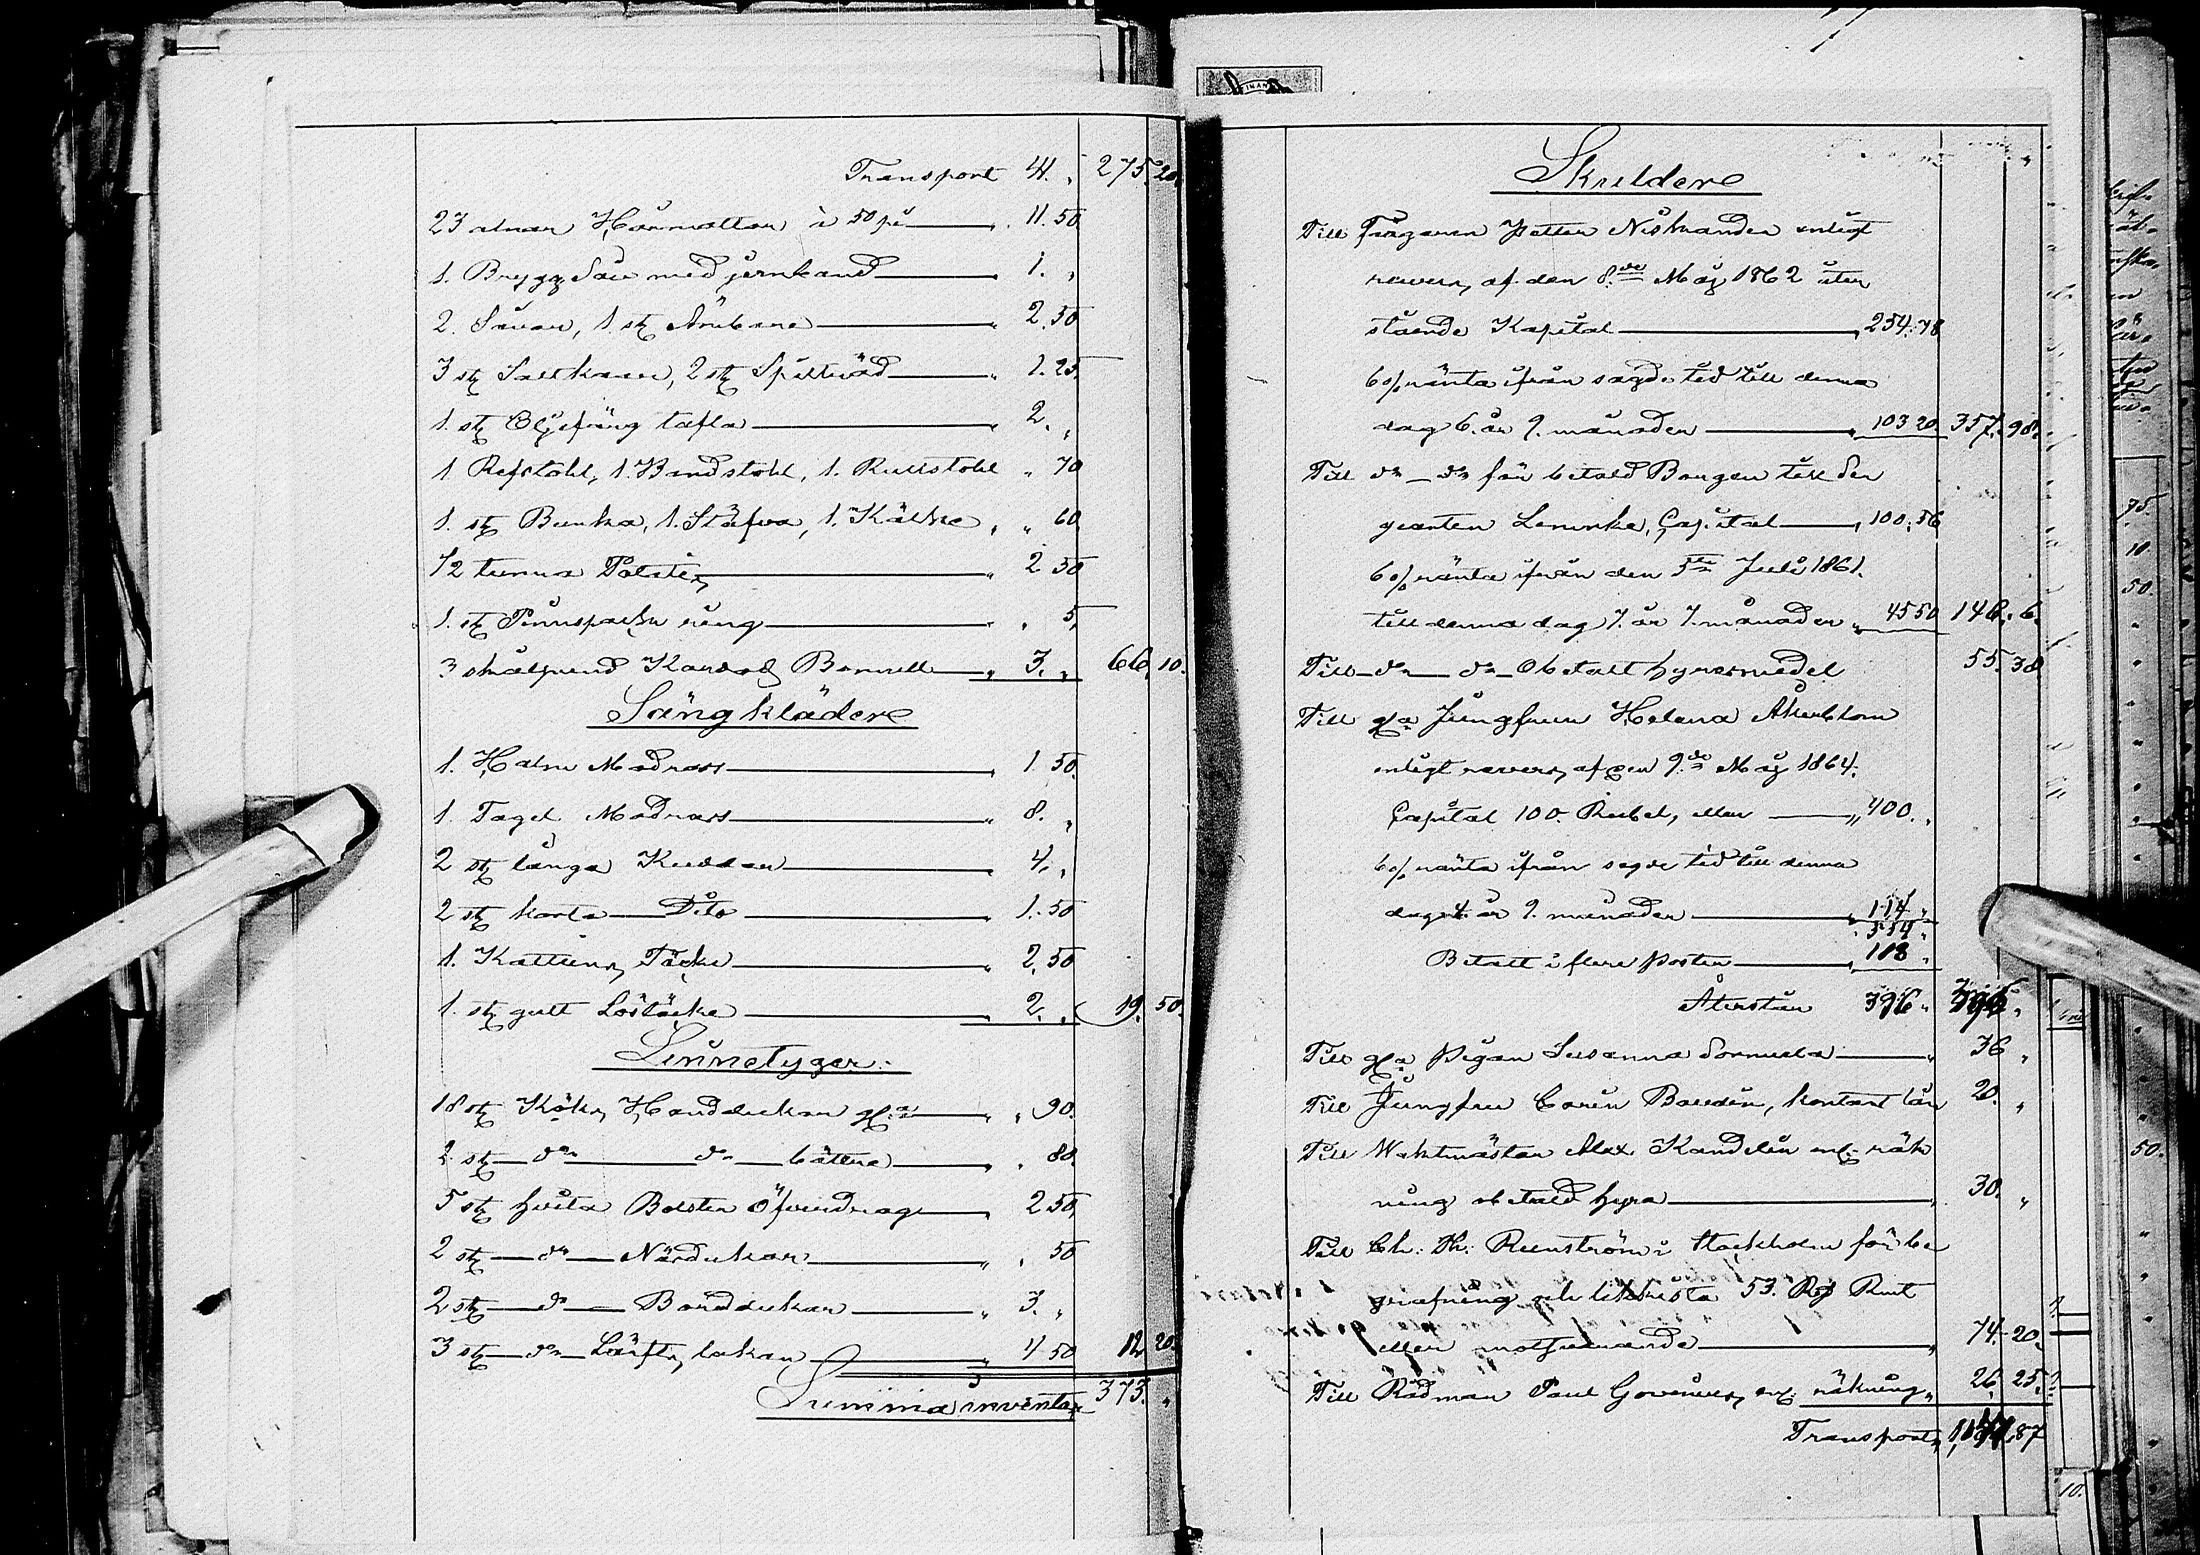 Transport 41. „ 275. 20.
23 alnar Hårmattor à 50 pi „ 11. 50
1. Brygg Såa med jernband „ 1. „
2. Såuar, 1 st Åmbare „ 2. 50
3 st Saltkarar, 2 st „ 1. 25.
1. st Oljefärg tafla „ 2. „
1 Refstohl, 1. Bandstohl, 1. Rullstohl „ 70
1. st Bunka, 1. Stäfva, 1. Kälke „ „ 60
1/2 tunna „ 2 50
1. st ring „ „ 5
3 skålpund Kardad Bomull „ 3. „ 66. 10.
Sängkläder
1. Halm Madrass „ 1. 50.
1. Tagel Madrass „ 8. „
2 st långa Kuddar „ 4. „
2 st korta Dito „ 1. 50
1. Kattuns Täcke „ 2. 50
1. st gult Löstäcke „ 2. „ 19. 50.
Linnetyger
18 st Köks Handdukar gla „ „ 90.
2 st do do bättre „ „ 80.
5 st hvita Bolster Öfverdrag „ 2 50.
2 st do Närdukar „ „ 50
2 st do Borddukar „ 3. „
3 st do Lärfts lakan „ 4 50 12 20.
Summa inventar 373. „
Skulder
Till Färgaren Petter Niskander enligt
revers af den 8.de Maj 1862 åter
stående Kapital „ 254. 78
6 o/o ränta ifrån sagde tid till denna
dag 6. år 9. månader „ 103 20. 357. 98.
Till do do för betald Borgen till Ser
geanten Lemke, Capital „ 100. 56
6 o/o ränta ifrån den 5te Juli 1861.
till denna dag 7. år 7. månader „ 45 50 146. 6.
Till do do Obetalt hyresmedel 55. 38
Till gla Jungfrun Helena Åkerblom
enligt revers af den 9.de Maj 1864.
Capital 100. Rubel, eller „ 400. „
6 o/o ränta ifrån sagde tid till denna
dag 4. år 9. månader „ 114 „
„ 514 „
Betalt i flere poster „ 118 „
Återstår 396 „ 396 „
Till gla Pigan Susanna „ 36 „
Till Jungfru Carin Bondin, kontant lån 20. „
Till Waktmästar Alex. Kandelin enl. räk
ning obetald hyra „ 30. „
Till Ch. Th. Renström i Stockholm för be
grafning och likkista 53. Rd Rmt
eller motsvarande „ 74. 20.
Till Rådman Paul Govenius enl. räkning „ 26. 25.
Transport „ 1,141. 87